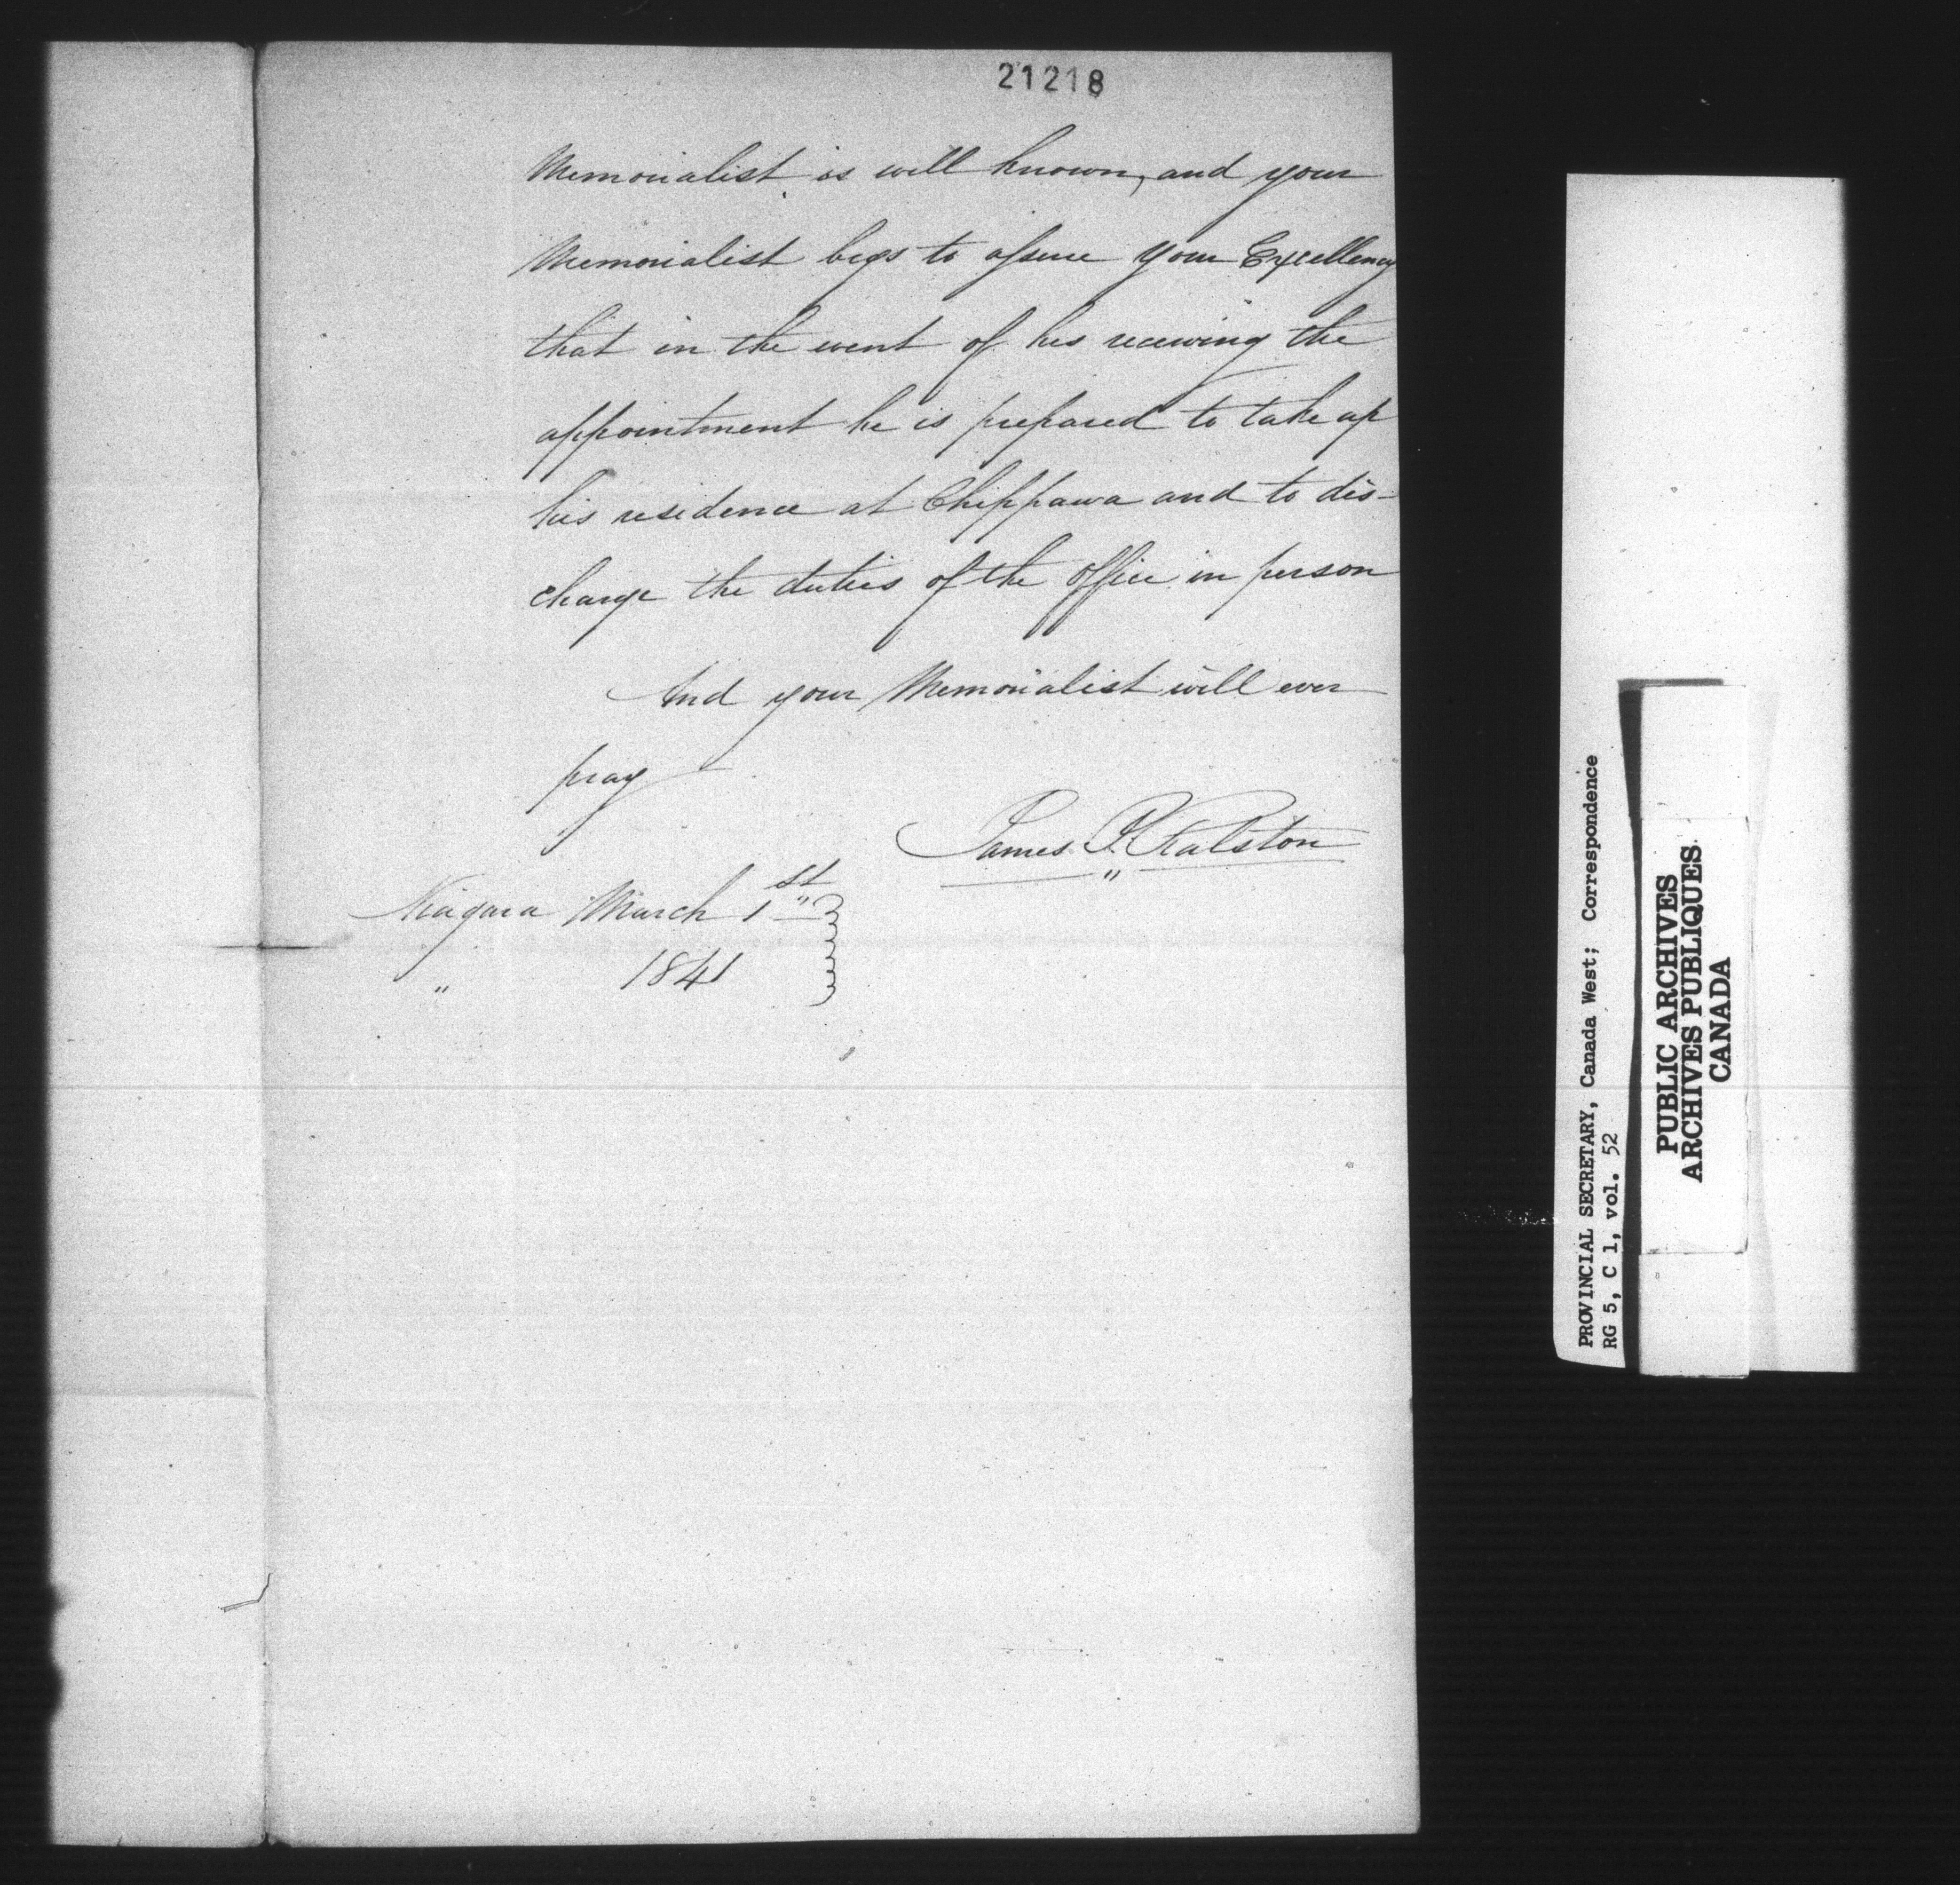 21218
Memorialist is well known, and your
Memorialist begs to assure your Excellency
that in the event of his receiving the
appointment he is prepared to take up
his residence at Chippawa and to dis-
charge the duties of the Office in person
And your Memorialist will ever
pray
James Ralston
Niagara March 1st
" 1841
PROVINCIAL SECRETARY, Canada West; Correspondence
RG 5, C 1, vol. 52
PUBLIC ARCHIVES
ARCHIVES PUBLIQUES
CANADA